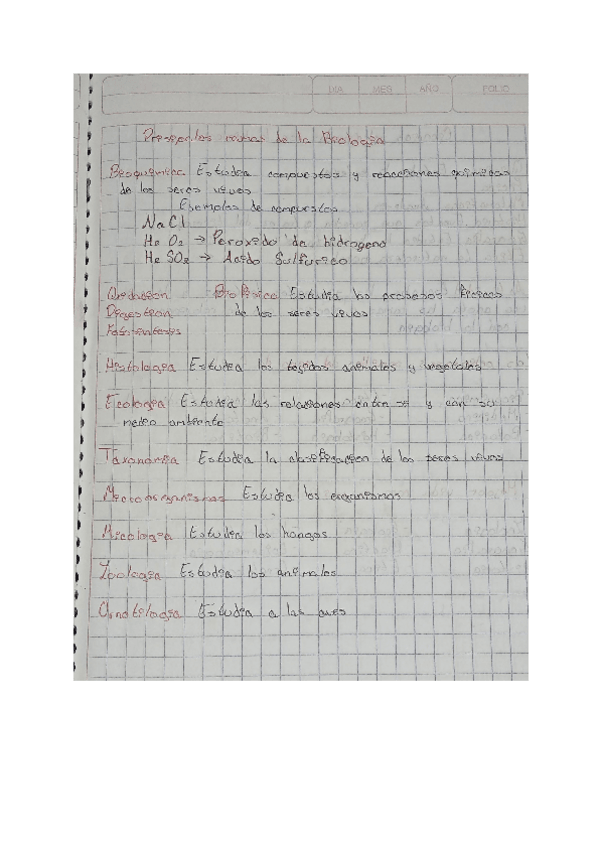 DIA MES AÑO FOLIO
Principales ramas de la Biologia
Bioquimica Estudia compuestos y reacciones quimicas
de los seres vivos
Ejemplos de compuestos
NaCl
He O2 → Peroxido de hidrogeno
He SO2 → Acido Sulfurico
Biofisica Estudia los procesos fisicos
Digestion de los seres vivos
Histologia Estudia los tejidos animales y vegetales
Ecologia Estudia las relaciones entre si y con su
medio ambiente
Taxonomia Estudia la clasificacion de los seres vivos
Microorganismos Estudia los organismos
Micologia Estudia los hongos
Zoologia Estudia los animales
Estudia a las aves